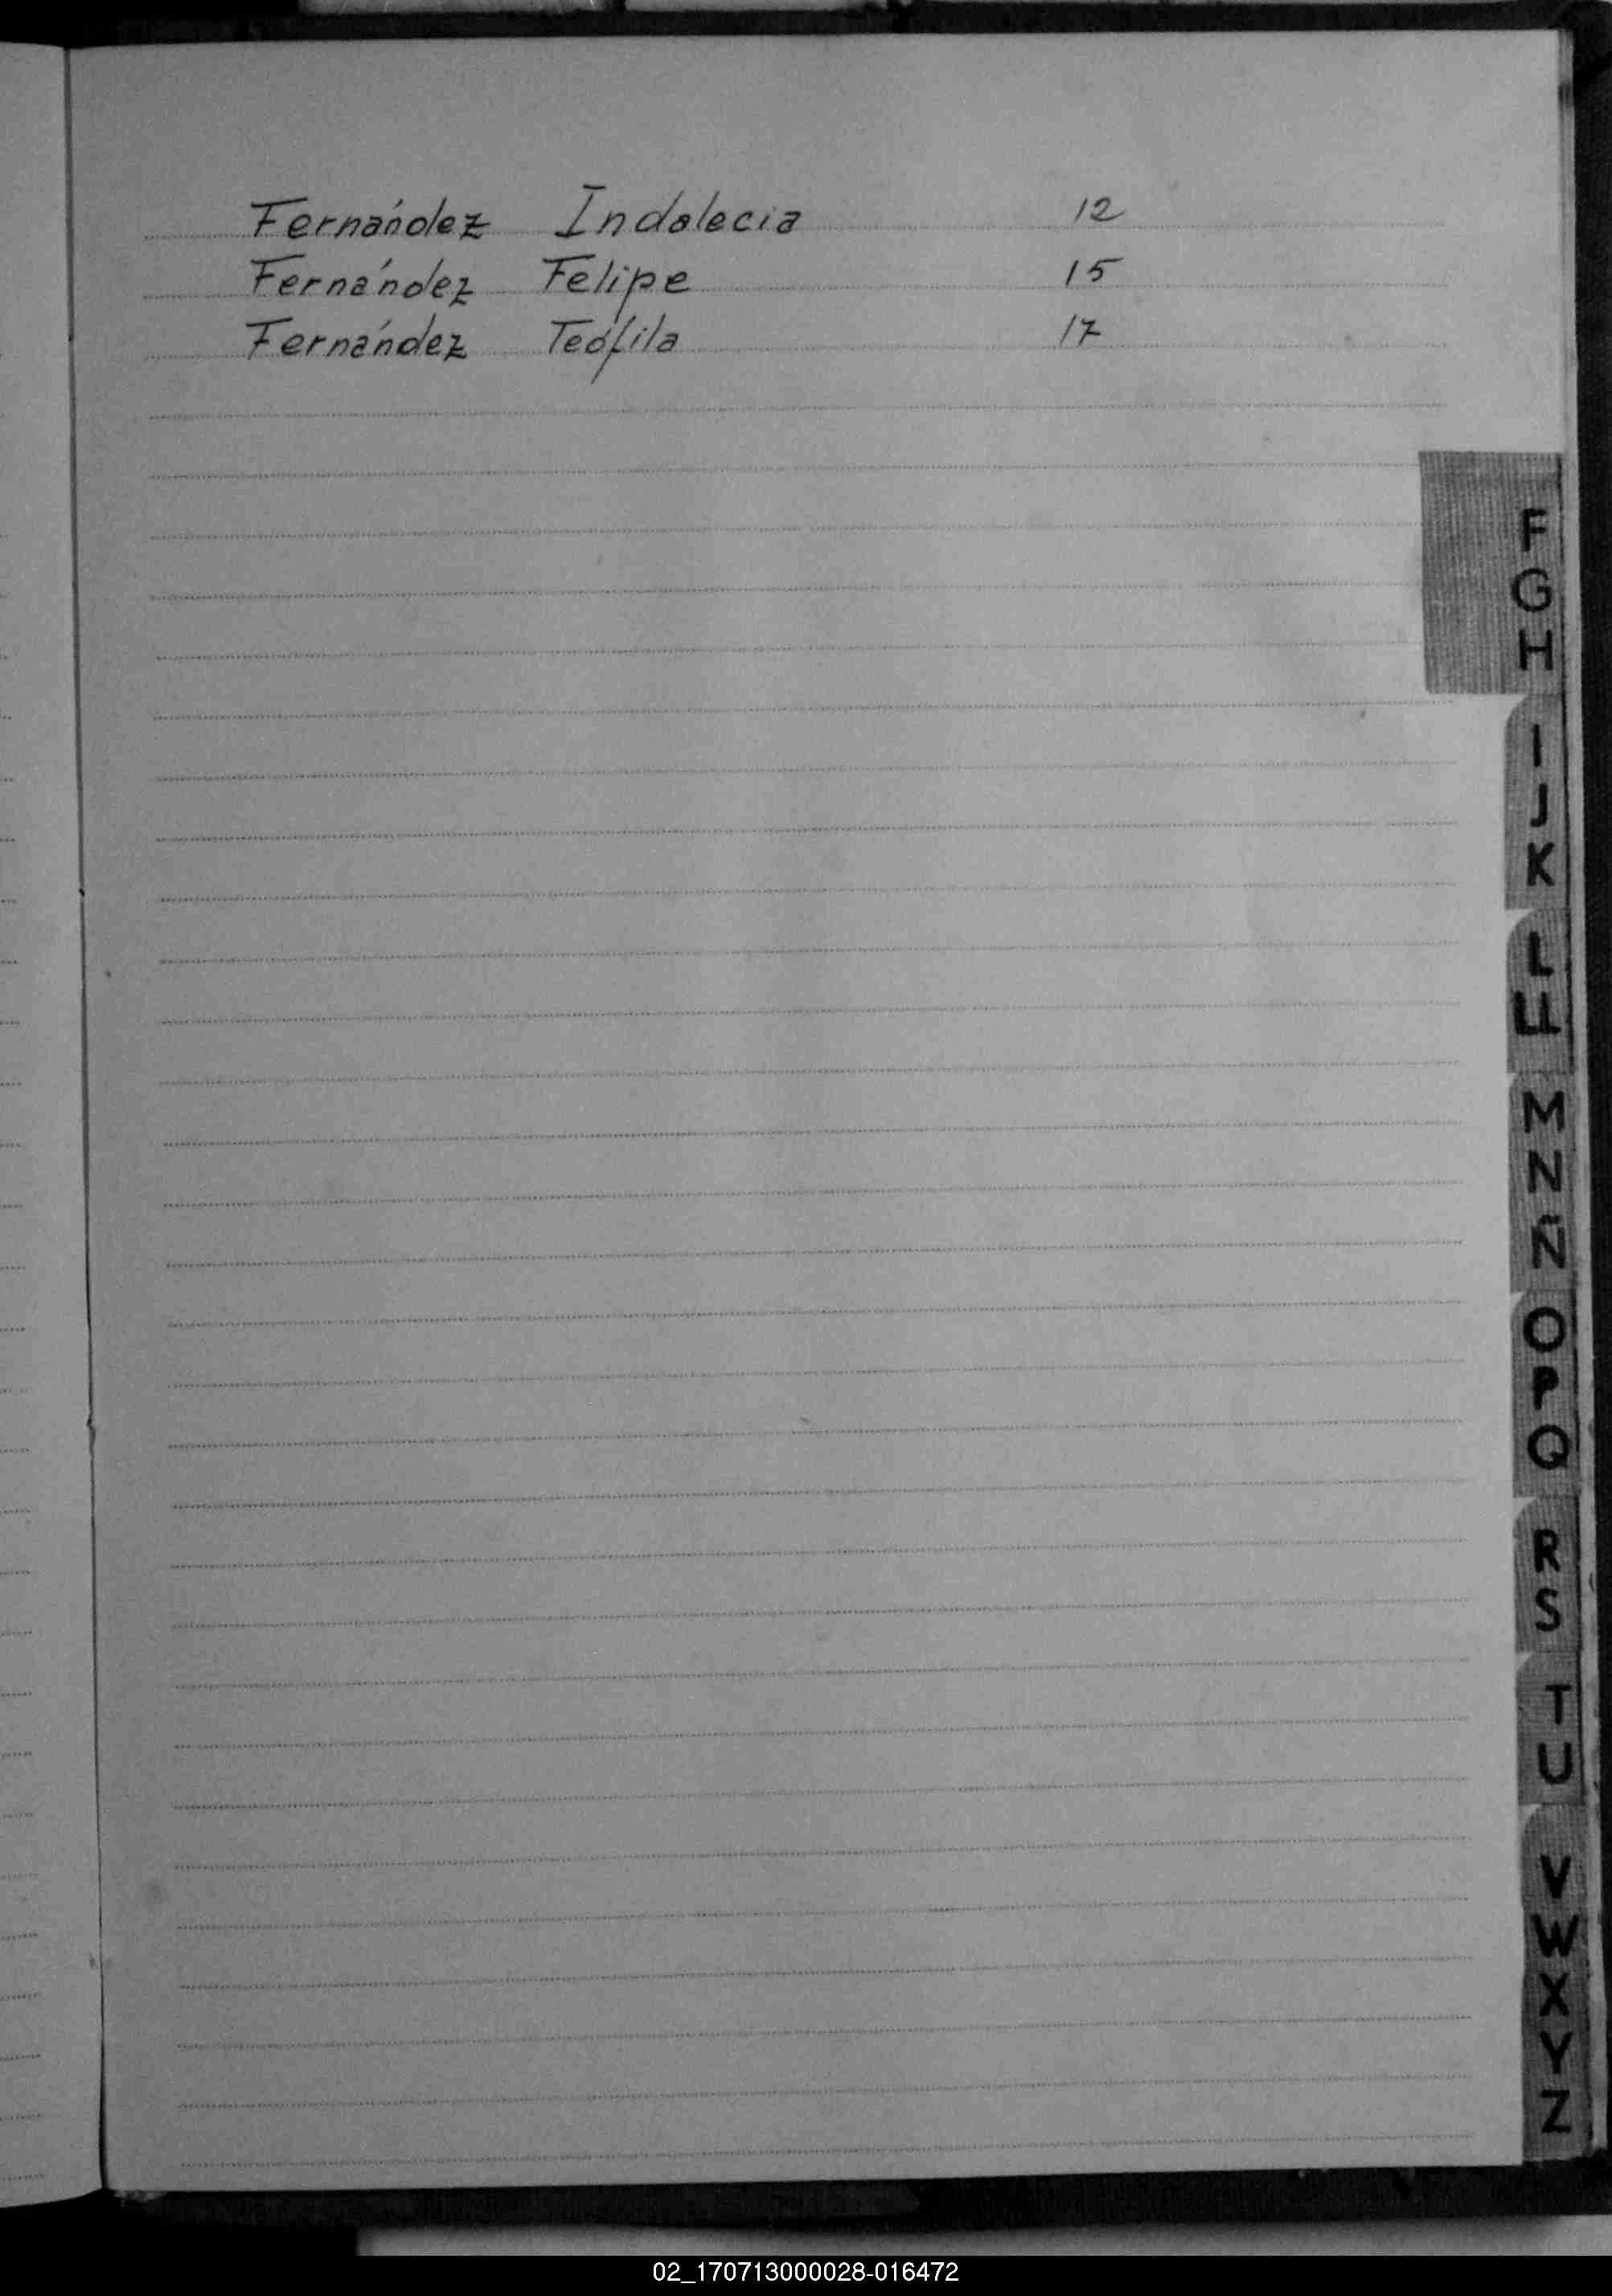 Fernández Indalecia 12
Fernández Felipe 15
Fernández Teófila 17
F
G
H
I
J
K
L
LL
M
N
Ñ
O
P
Q
R
S
T
U
V
W
X
Y
Z
02_170713000028-016472